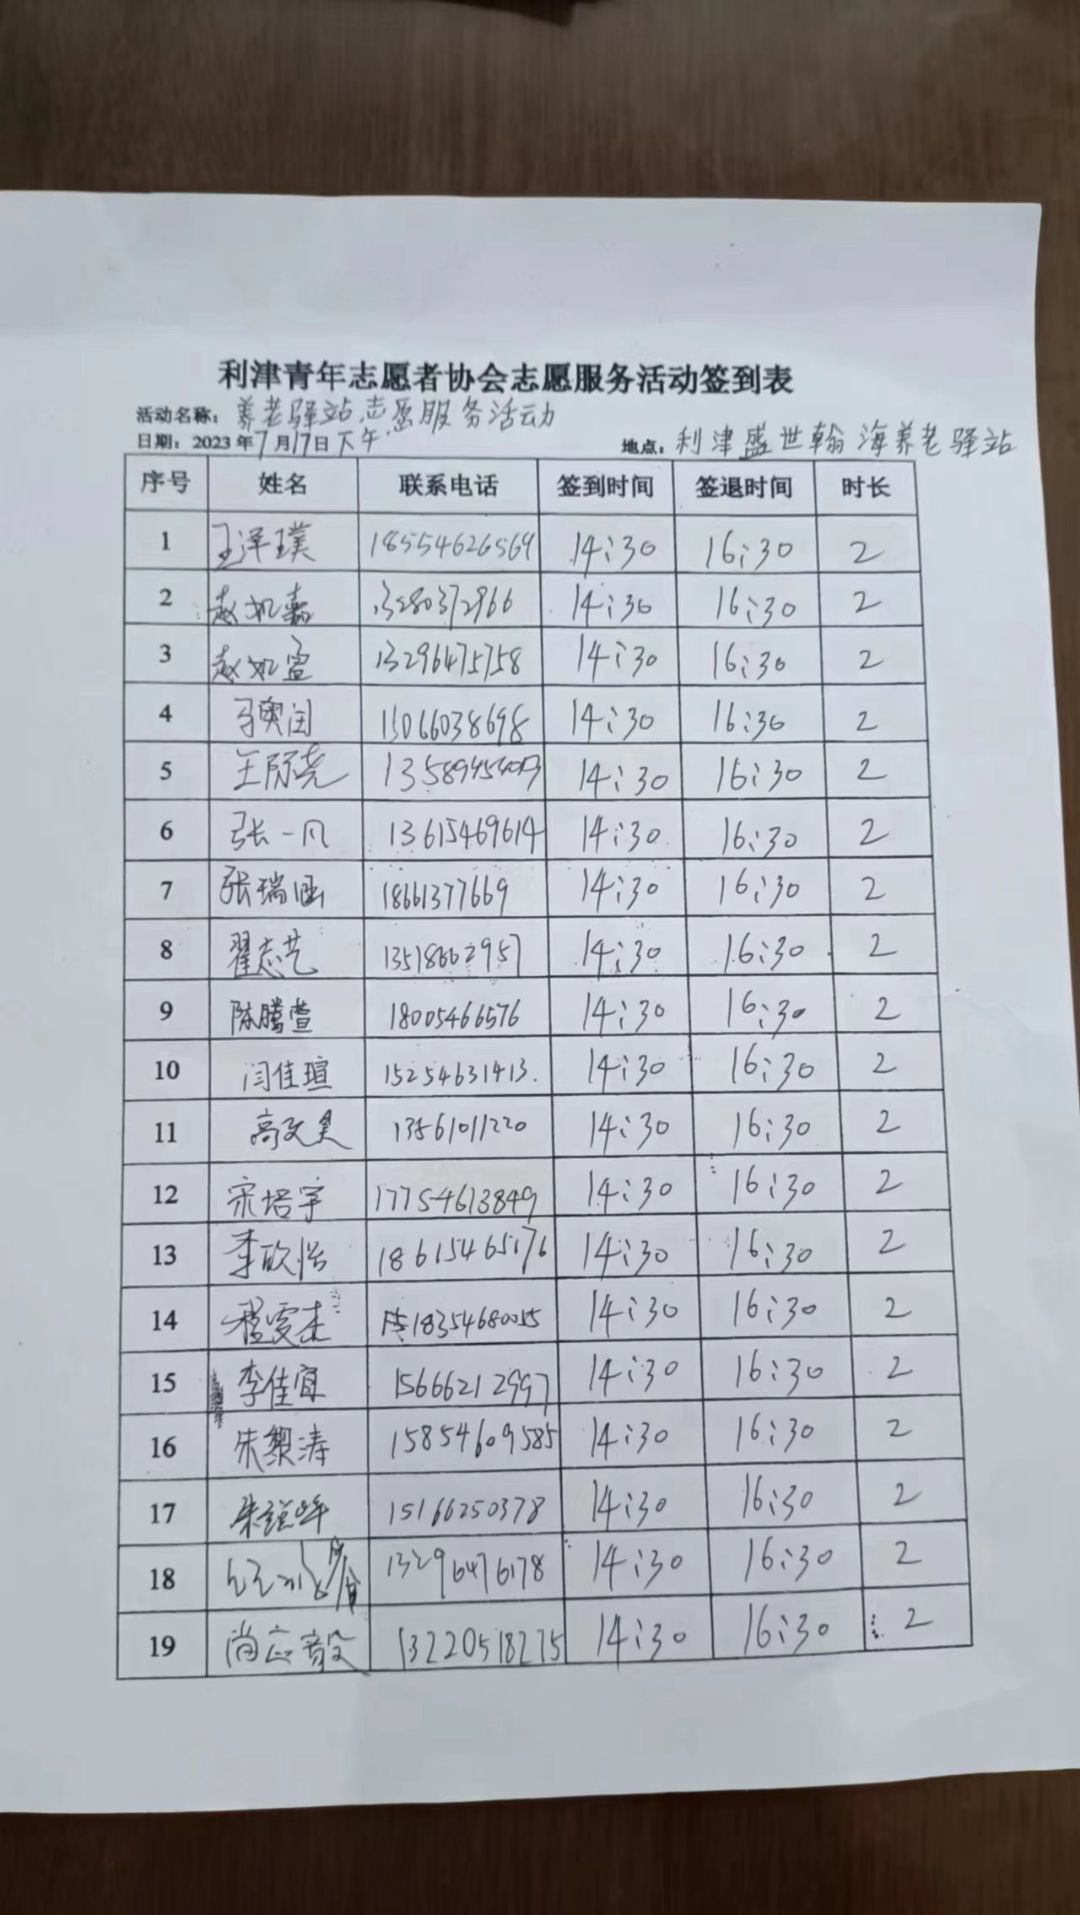 利津青年志愿者协会志愿服务活动签到表
活动名称：养老驿站志愿服务活动
日期：2023年7月17日下午 地点：利津盛世翰海养老驿站
序号 姓名 联系电话 签到时间 签退时间 时长
1 王泽璞 18554626569 14:30 16:30 2
2 赵如嘉 13280372966 14:30 16:30 2
3 赵如宣 13296475758 14:30 16:30 2
4 马奥闰 15066038698 14:30 16:30 2
5 王际尧 14:30 16:30 2
6 张一凡 13615469614 14:30 16:30 2
7 张瑞涵 18661377669 14:30 16:30 2
8 翟志艺 14:30 16:30 2
9 陈腾萱 18005466576 14:30 16:30 2
10 闫佳瑄 15254631413. 14:30 16:30 2
11 高文昊 13561011220 14:30 16:30 2
12 宋培宇 17754613849 14:30 16:30 2
13 李欣怡 18615465176 14:30 16:30 2
14 程雯杰 18354680055 14:30 16:30 2
15 李佳宜 15666212997 14:30 16:30 2
16 朱黎涛 15854609585 14:30 16:30 2
17 朱强峰 15166250378 14:30 16:30 2
18 13296476178 14:30 16:30 2
19 尚应毅 13220518275 14:30 16:30 2